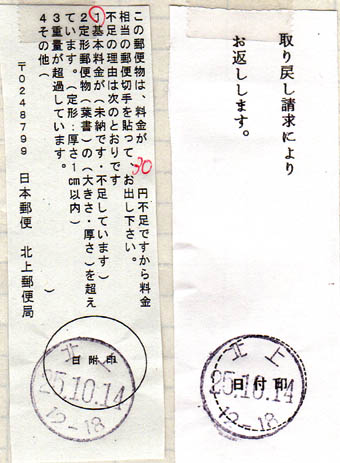 この郵便物は、料金が 30 円不足ですから料金
相当の郵便切手を貼って、お出し下さい。
不足の理由は次のとおりです
1基本料金が(未納です・不足しています)
2定形郵便物(葉書)の(大きさ・厚さ)を超え
ています。(定形:厚さ1cm以内)
3重量が超過しています。
4その他(　　　)
〒0248799 日本郵便 北上郵便局
日附印
北上
25.10.14
12-18
取り戻し請求により
お返しします。
日付印
北上
25.10.14
12-18